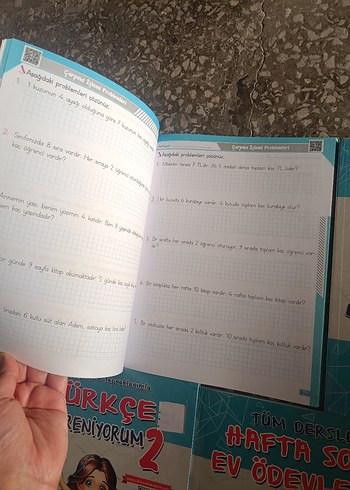 Çarpma İşlemi Problemleri
Aşağıdaki problemleri çözünüz.
1. 1 kuzunun 4 ayağı olduğuna göre 7 kuzunun kaç
2. Sınıfımızda 8 sıra vardır. Her sıraya 2 öğrenci
kaç öğrenci vardır?
Annemin yaşı, benim yaşımın 4 katıdır. Ben 8 yaşında
kaç yaşındadır?
günde 9 sayfa kitap okumaktadır. 5 günde
6 kutu süt alan Adem, satıcıya kaç lira
Çarpma İşlemi Problemleri
Aşağıdaki problemleri çözünüz.
1. tanesi 7 TL'dir. Ali 5 toplam kaç TL öder?
2. Bir kutuda 6 kurabiye vardır. 4 kutuda toplam kaç kurabiye olur?
3. Bir sırada 2 öğrenci oturuyor. 9 sırada toplam kaç öğrenci var-
dır?
4. Bir kitaplıkta her rafta 10 kitap vardır. 4 rafta toplam kaç kitap vardır?
5. Bir otobüste her sırada 2 koltuk vardır. 10 sırada toplam kaç koltuk vardır?
TÜRKÇE
ÖĞRENİYORUM 2
TÜM DERSLER
HAFTA SO
EV ÖDEVLE